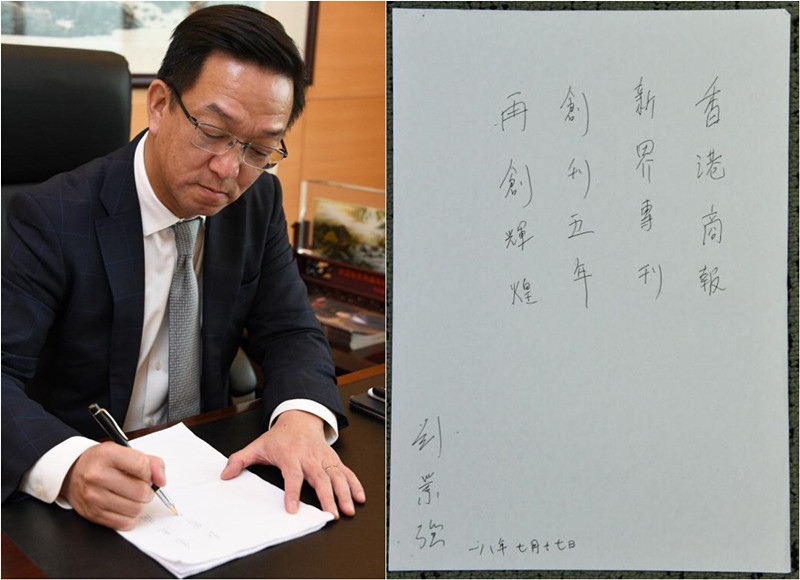 香港商報
新界專刊
創刊五年
再創輝煌
劉業強
一八年七月十七日